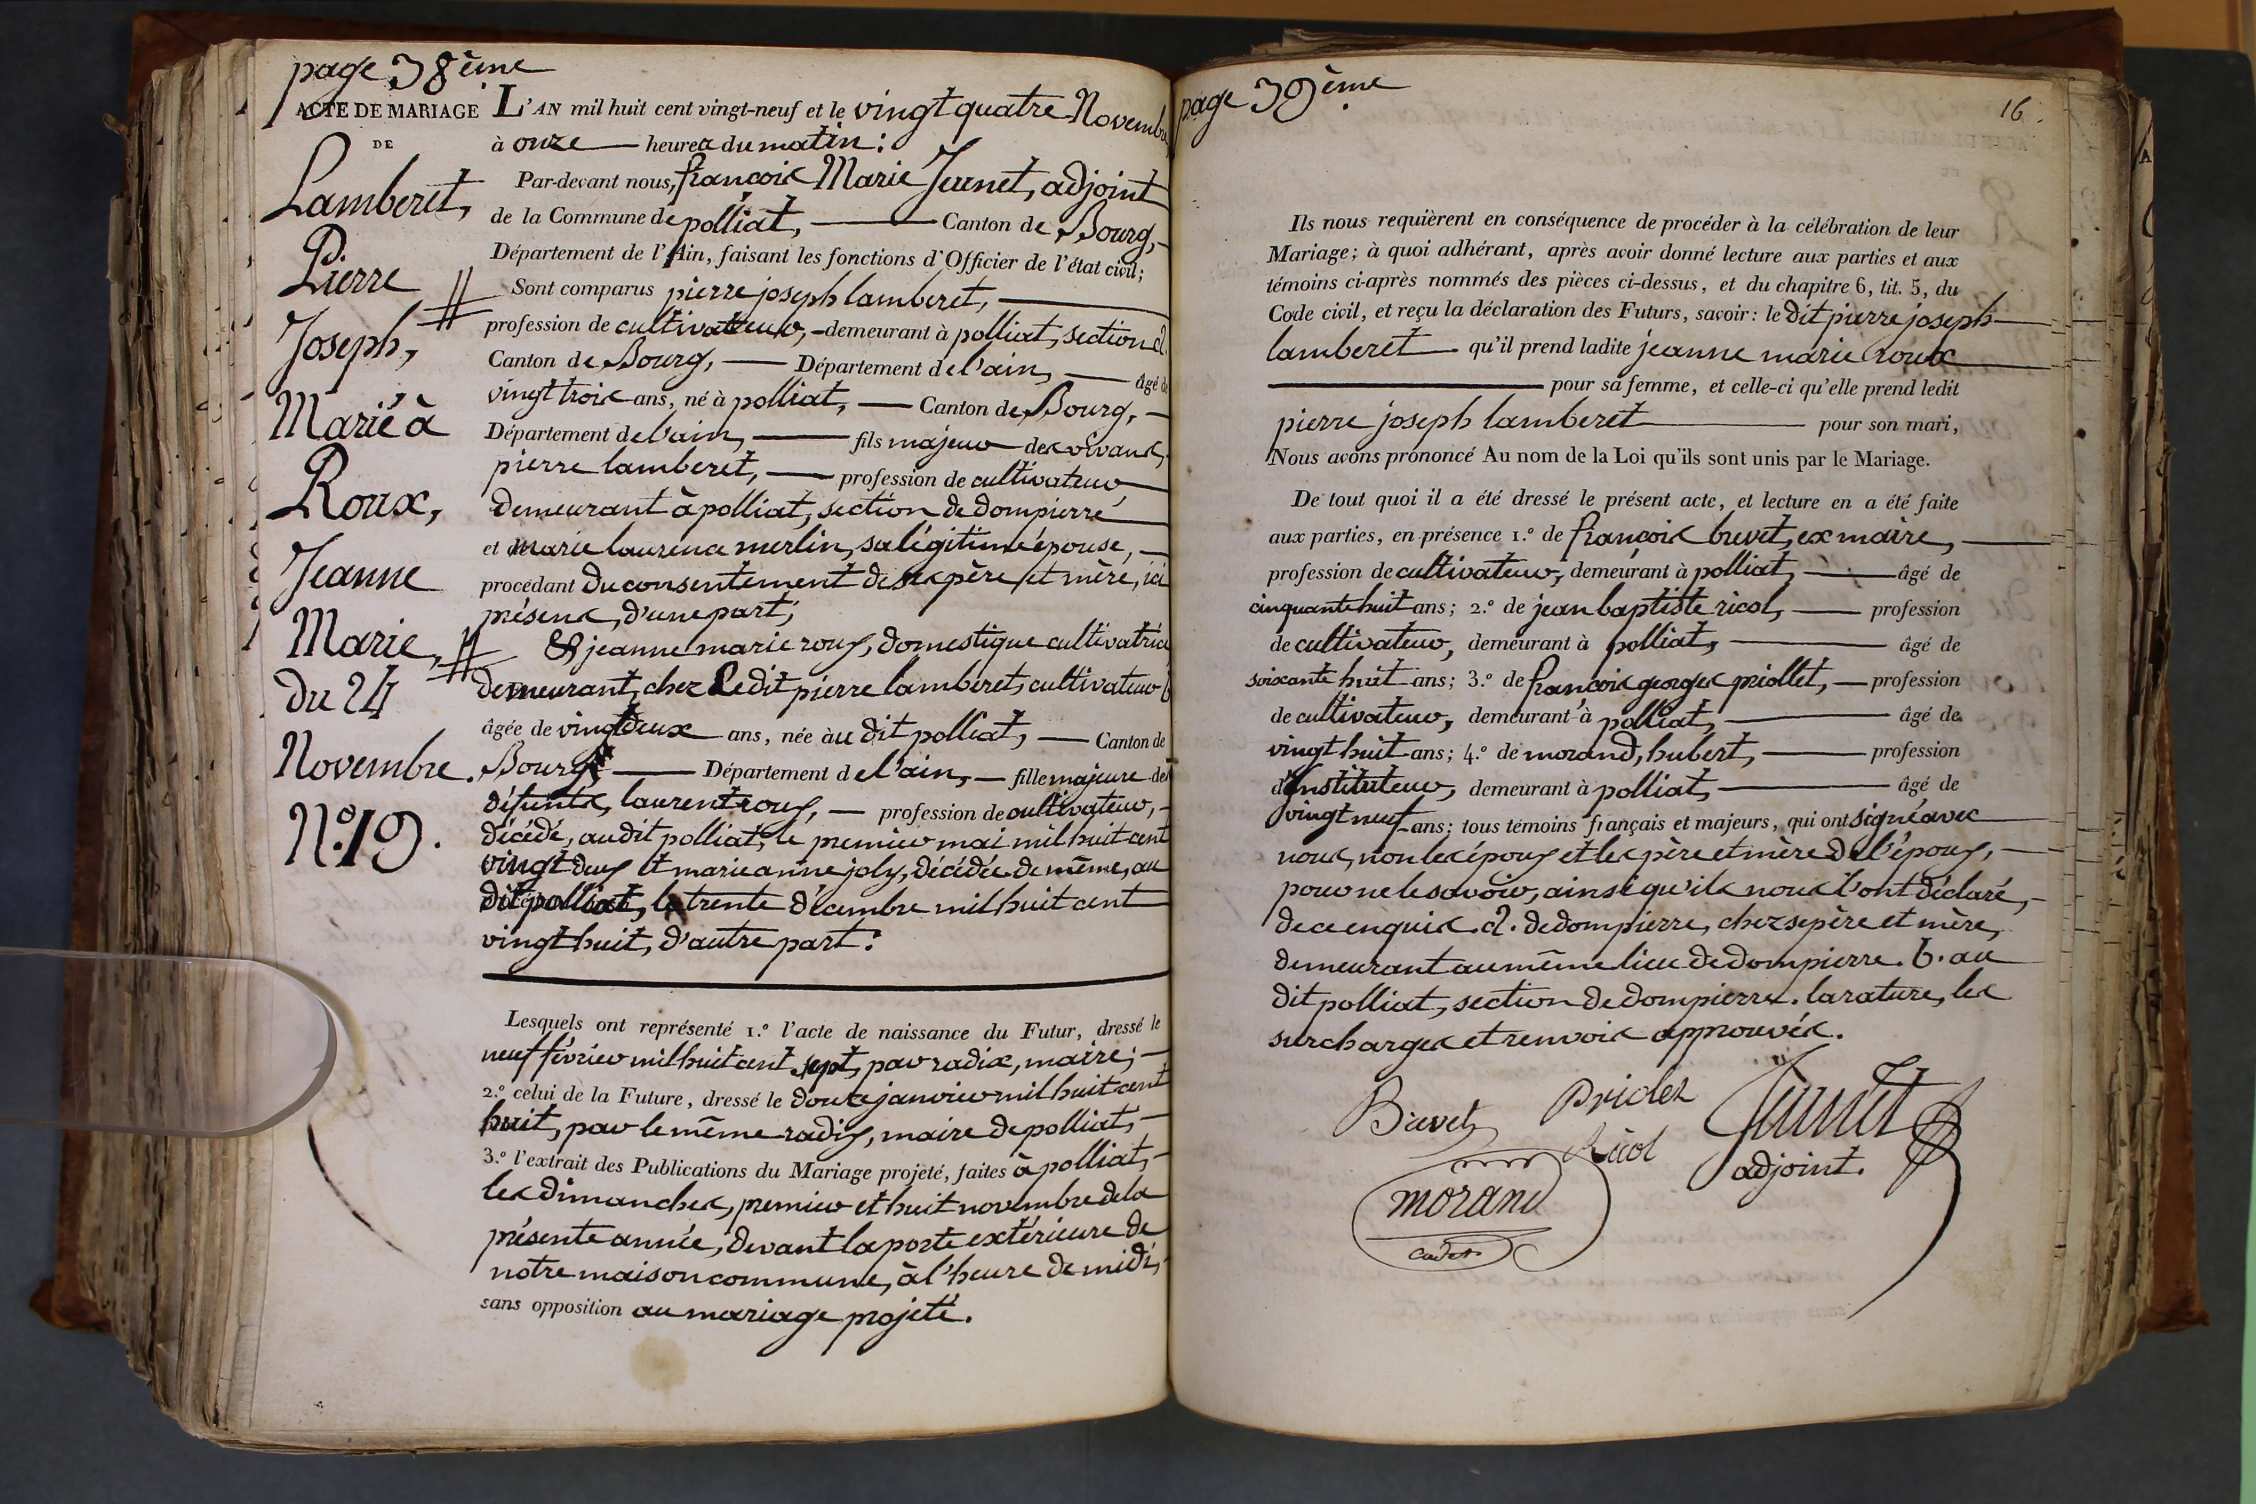 page 38ème
ACTE DE MARIAGE
DE
Lamberet,
Pierre
Joseph,
Marié à
Roux,
Jeanne
Marie,
du 24
Novembre.
N.º 19.
L'AN mil huit cent vingt-neuf et le vingt quatre Novembre
à onze heures du matin;
Par-devant nous, françois Marie Jeunet, adjoint
de la Commune de polliat, Canton de Bourg,
Département de l'Ain, faisant les fonctions d'Officier de l'état civil;
Sont comparus pierre joseph lamberet,
profession de cultivateur, demeurant à polliat, section a.
Canton de Bourg, Département de l'ain, âgé de
vingt trois ans, né à polliat, Canton de Bourg,
Département de l'ain, fils majeur des vivans,
pierre lamberet, profession de cultivateur
demeurant à polliat, section de dompierre
et marie laurence merlin, sa légitime épouse,
procédant du consentement de ses père et mère, ici
présens, d'une part;
& jeanne marie roux, domestique cultivatrice
demeurant, chez Ledit pierre lamberet, cultivateur b
âgée de vingt deux ans, née àu dit polliat, Canton de
Bourg Département de l'ain, fille majeure des
défunts, laurent roux, profession de cultivateur,
décédé, au dit polliat, le premier mai mil huit cent
vingt deux et marie anne joly, décédée de même, au
dit polliat, le trente décembre mil huit cent
vingt huit, d'autre part:
Lesquels ont représenté 1.º l'acte de naissance du Futur, dressé le
neuf février mil huit cent sept, par radix, maire;
2.º celui de la Future, dressé le douze janvier mil huit cent
huit, par le même radix, maire de polliat,
3.º l'extrait des Publications du Mariage projeté, faites à polliat,
les dimanches, premier et huit novembre de la
présente année, devant la porte extérieure de
notre maison commune, à l'heure de midi,
sans opposition au mariage projeté.
page 39ème
16.
Ils nous requièrent en conséquence de procéder à la célébration de leur
Mariage; à quoi adhérant, après avoir donné lecture aux parties et aux
témoins ci-après nommés des pièces ci-dessus, et du chapitre 6, tit. 5, du
Code civil, et reçu la déclaration des Futurs, savoir: le dit pierre joseph
lamberet qu'il prend ladite jeanne marie roux
pour sa femme, et celle-ci qu'elle prend ledit
pierre joseph lamberet pour son mari,
Nous avons prononcé Au nom de la Loi qu'ils sont unis par le Mariage.
De tout quoi il a été dressé le présent acte, et lecture en a été faite
aux parties, en présence 1.º de françois brevet, ex maire,
profession de cultivateur, demeurant à polliat, âgé de
cinquante huit ans; 2.º de jean baptiste ricol, profession
de cultivateur, demeurant à polliat, âgé de
soixante huit ans; 3.º de françois georges priollet, profession
de cultivateur, demeurant à polliat, âgé de
vingt huit ans; 4.º de morand, hubert, profession
d'instituteur, demeurant à polliat, âgé de
vingt neuf ans; tous témoins français et majeurs, qui ont signé avec
nous, non les époux et les père et mère de l'époux,
pour ne le savoir, ainsi qu'ils nous l'ont déclaré,
de ce enquis. a. de dompierre, chez se père et mère,
demeurant au même lieu de dompierre. b. au
dit polliat, section de dompierre. la rature, les
surcharges et renvois approuvés.
Brevet
Ricol
Jeunet
adjoint.
morand
cadet